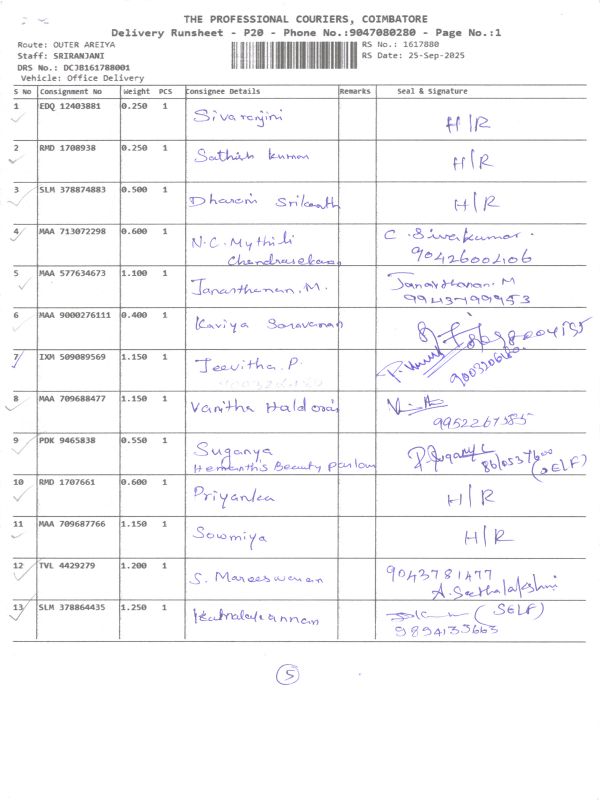 THE PROFESSIONAL COURIERS, COIMBATORE
Delivery Runsheet - P20 - Phone No.:9047080280 - Page No.:1
Route: OUTER AREIYA
RS No.: 1617880
Staff: SRIRANJANI
RS Date: 25-Sep-2025
DRS No.: DCJB161788001
Vehicle: Office Delivery
S No Consignment No Weight PCS Consignee Details Remarks Seal & Signature
1 EDQ 12403881 0.250 1 Sivaranjini H/R
2 RMD 1708938 0.250 1 Sathish kumar H/R
3 SLM 378874883 0.500 1 Dharani Srikanth H/R
4 MAA 713072298 0.600 1 N.C. Mythili C. Sivakumar.
Chandrasekaran 9042600406
5 MAA 577634673 1.100 1 Janarthanan. M. Janarthanan. M
9943799953
6 MAA 9000276111 0.400 1 Kaviya Saravanan
7 IXM 509089569 1.150 1 Jeevitha. P.
8 MAA 709688477 1.150 1 Vanitha
9952267585
9 PDK 9465838 0.550 1 Suganya
Hemanth's Beauty parlour (SELF)
10 RMD 1707661 0.600 1 Priyanka H/R
11 MAA 709687766 1.150 1 Sowmiya H/R
12 TVL 4429279 1.200 1 S. Mareeswaran 9043781477
A. Seethalakshmi
13 SLM 378864435 1.250 1 (SELF)
9894133663
5